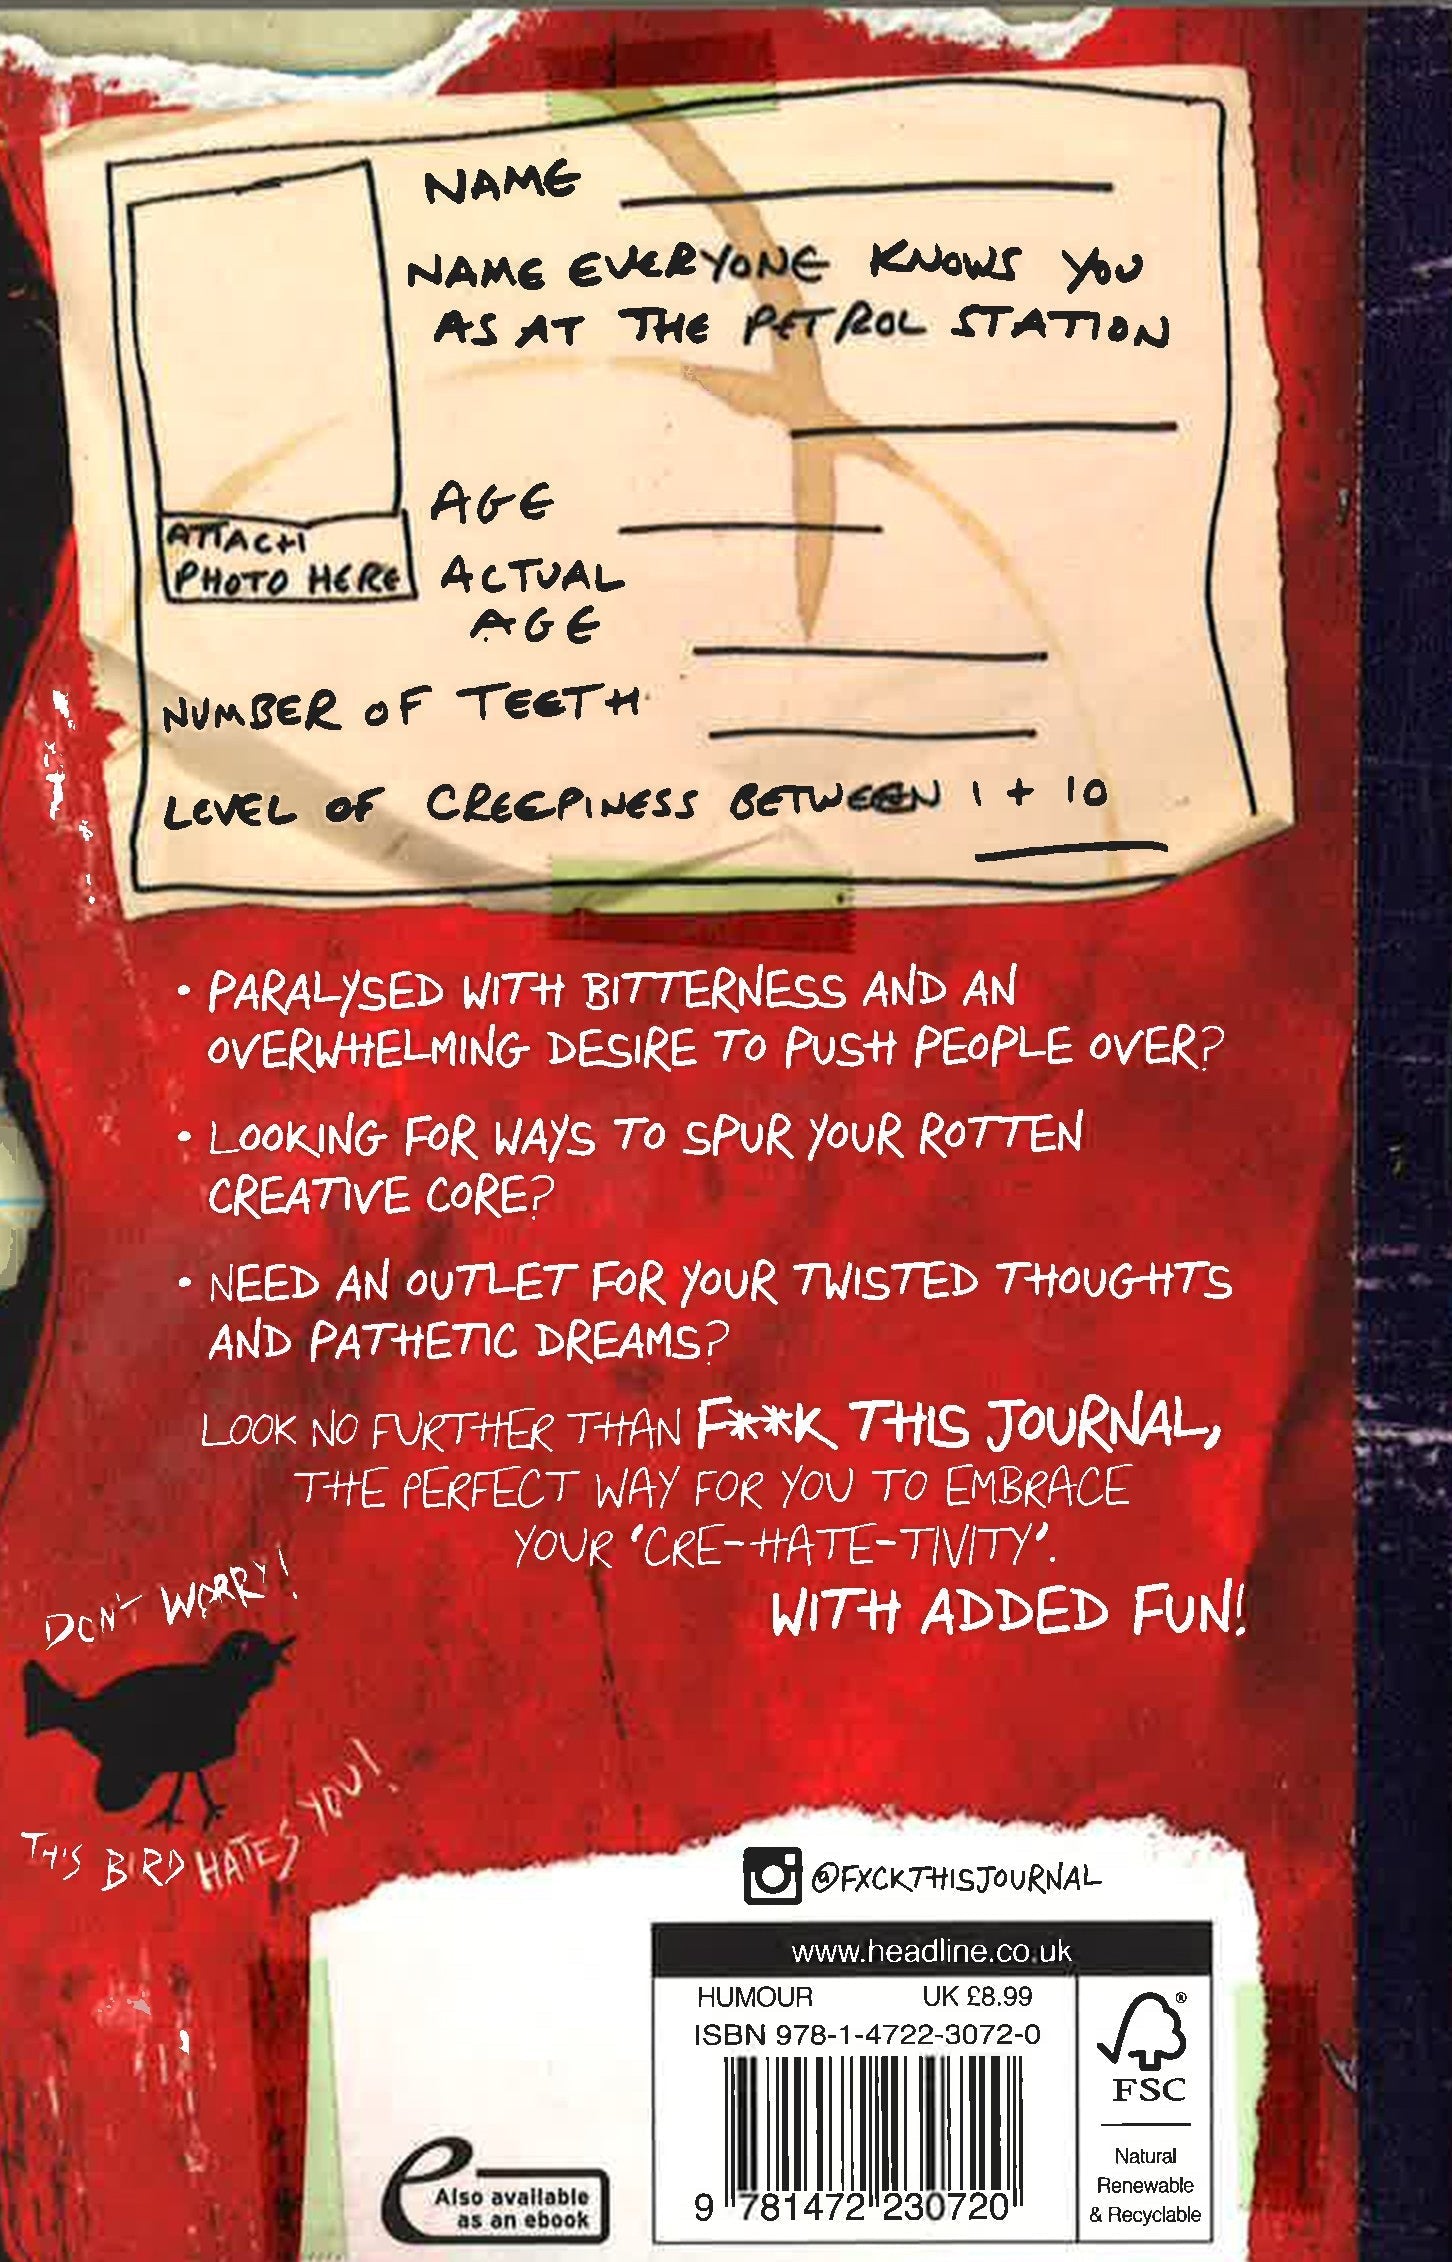 NAME
NAME EVERYONE KNOWS YOU
AS AT THE PETROL STATION
AGE
ATTACH
PHOTO HERE
ACTUAL
AGE
NUMBER OF TEETH
LEVEL OF CREEPINESS BETWEEN 1 + 10
• PARALYSED WITH BITTERNESS AND AN
OVERWHELMING DESIRE TO PUSH PEOPLE OVER?
• LOOKING FOR WAYS TO SPUR YOUR ROTTEN
CREATIVE CORE?
• NEED AN OUTLET FOR YOUR TWISTED THOUGHTS
AND PATHETIC DREAMS?
LOOK NO FURTHER THAN F**K THIS JOURNAL,
THE PERFECT WAY FOR YOU TO EMBRACE
YOUR 'CRE-HATE-TIVITY'.
WITH ADDED FUN!
DON'T WORRY!
THIS BIRD HATES YOU!
@FXCKTHISJOURNAL
www.headline.co.uk
HUMOUR UK £8.99
ISBN 978-1-4722-3072-0
9 781472 230720
FSC
®
Natural
Renewable
& Recyclable
e
Also available
as an ebook